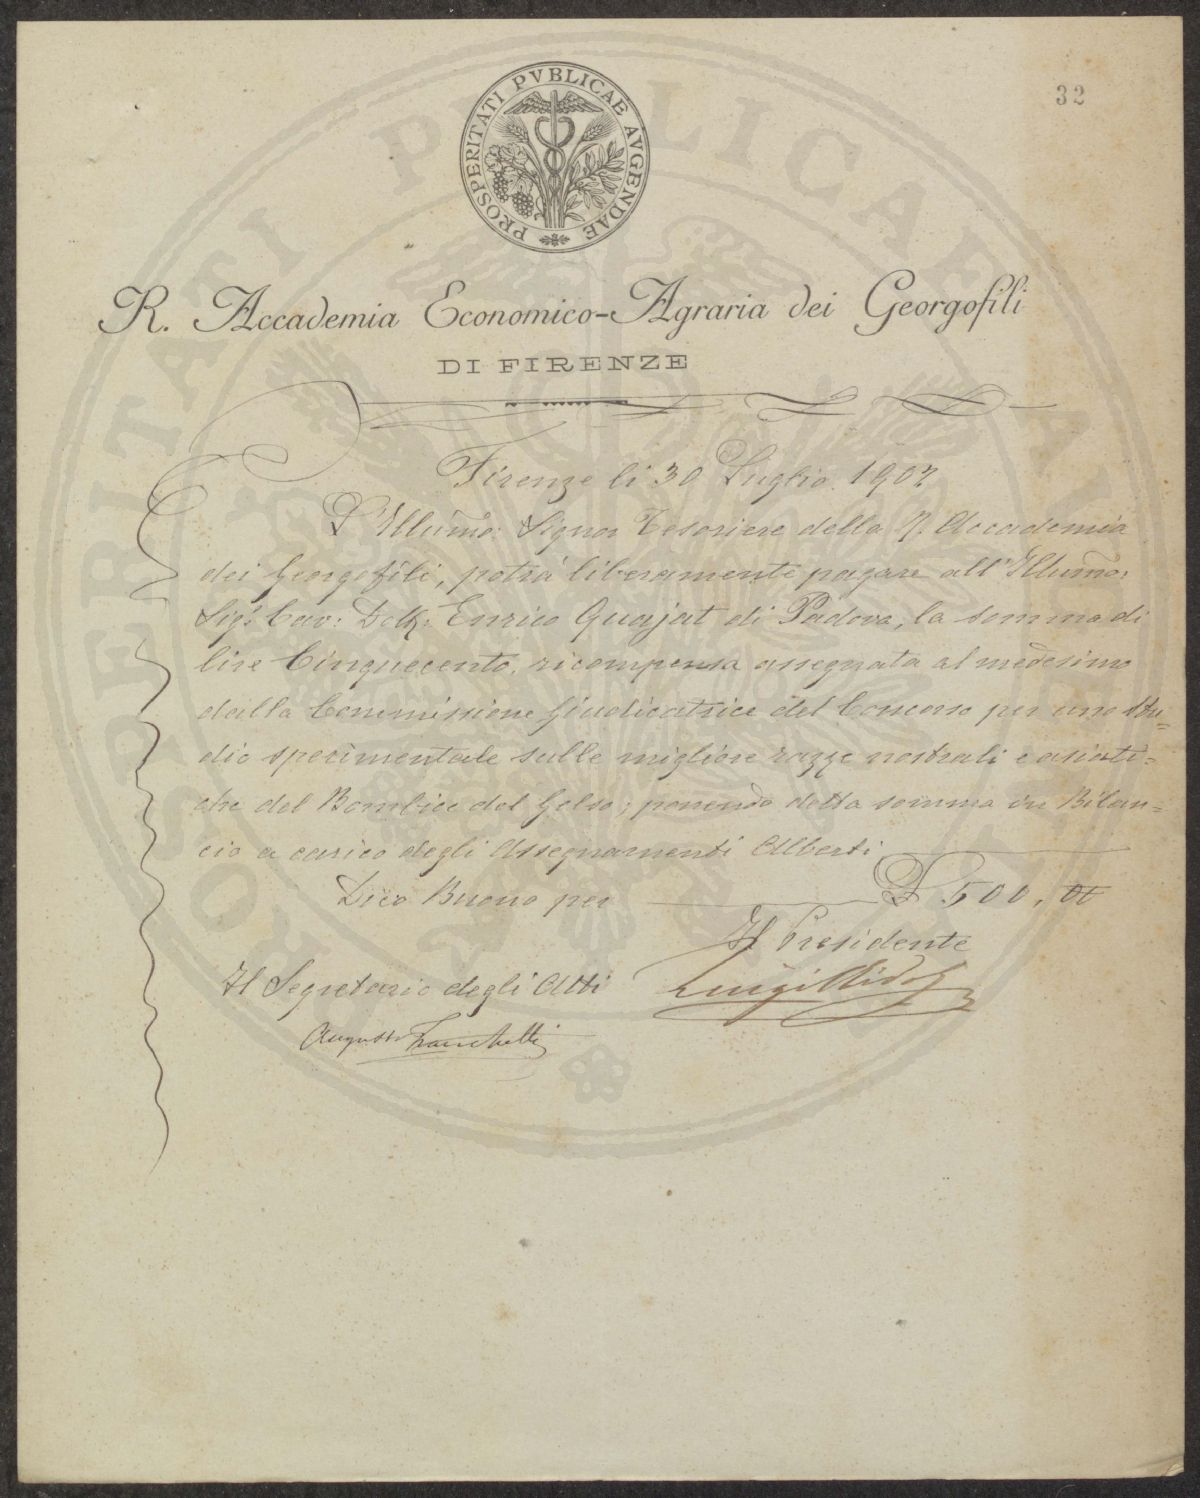 32
PROSPERITATI PVBLICAE AVGENDAE
R. Accademia Economico-Agraria dei Georgofili
DI FIRENZE
Firenze li 30 Luglio 1902
L'Illumo: Signor Tesoriere della R. Accademia
dei Georgofili, potrà liberamente pagare all'Illumo:
Sigr. Cav: Dott: Enrico Quajat di Padova, la somma di
lire Cinquecento, ricompensa assegnata al medesimo
dalla Commissione Giudicatrice del Concorso per uno stu=
dio sperimentale sulle migliore razze nostrali e asiati=
che del Bombice del Gelso; ponendo detta somma in Bilan=
cio a carico degli Assegnamenti Alberti
Dico Buono per L 500, 00
Il Presidente
Luigi Ridolfi
Il Segretario degli Atti
Augusto Franchetti